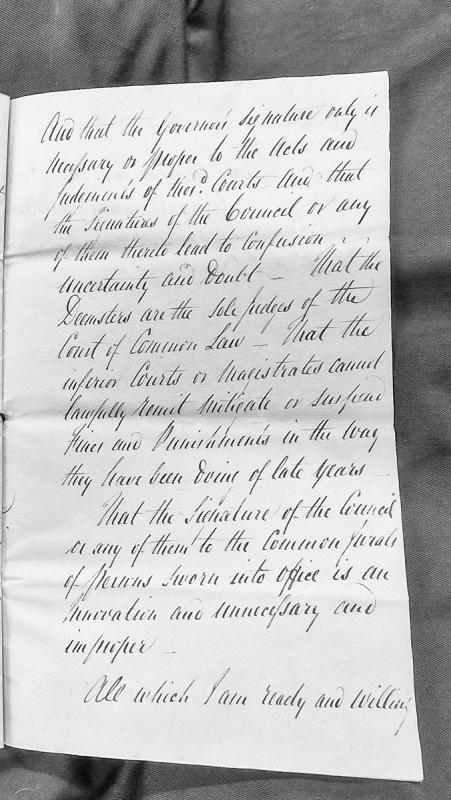 And that the Governor's signature only is
necessary or proper to the Acts and
Judgements of the s.d Courts And that
the Signatures of the Council or any
of them thereto lead to Confusion
uncertainty and Doubt — That the
Deemsters are the sole Judges of the
Court of Common Law — That the
inferior Courts or Magistrates cannot
lawfully remit mitigate or suspend
Fines and Punishments in the way
they have been doing of late years —
That the Signature of the Council
or any of them to the Common
of Persons sworn into office is an
Innovation and unnecessary and
improper —
All which I am ready and willing